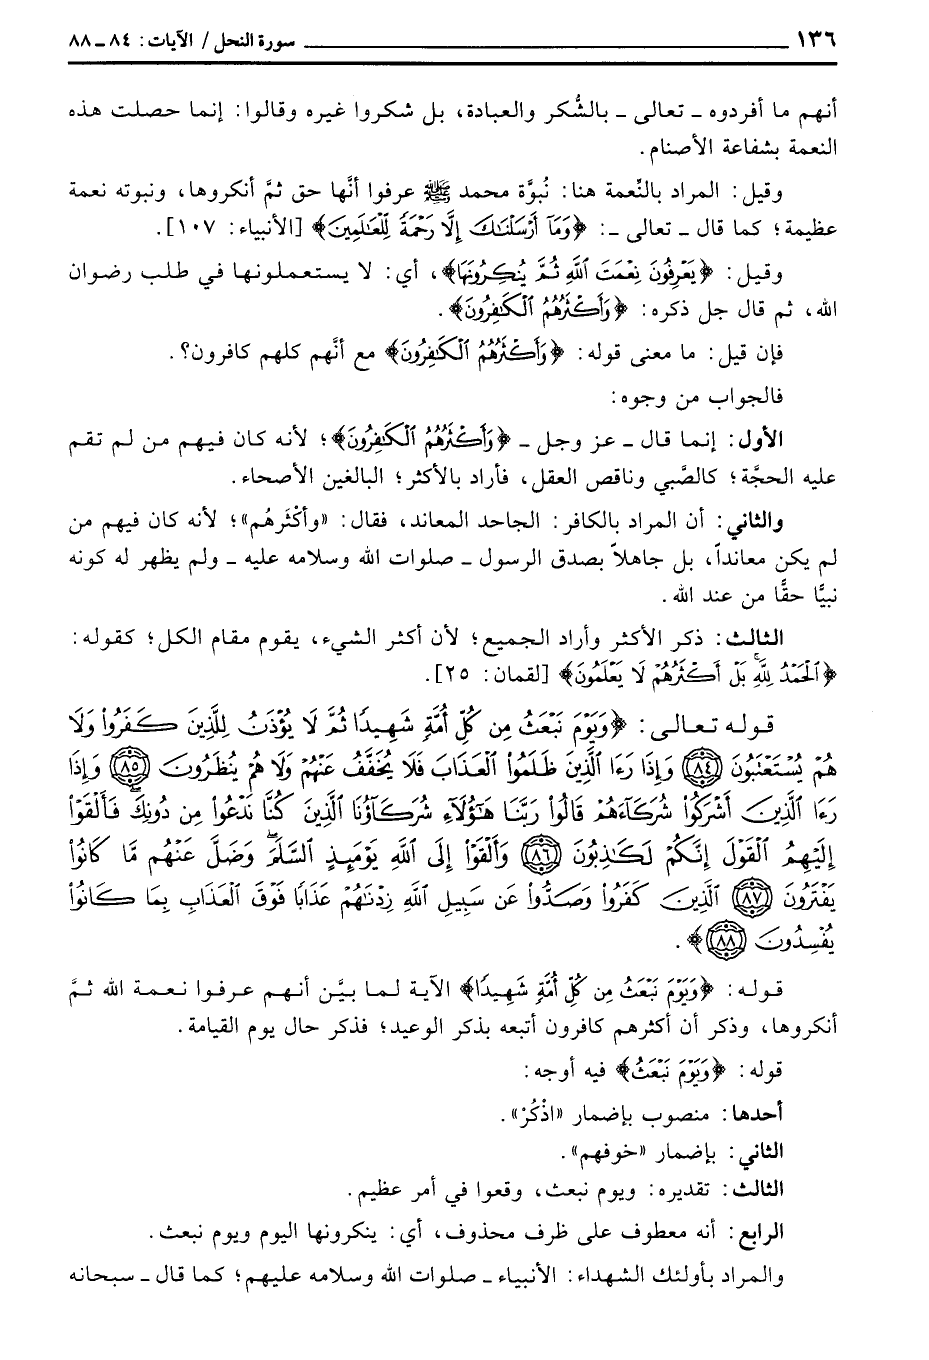 ١٣٦ ــــــــــــــــــــــــــــــــــــــــــــــــــــــــــــــــ سورة النحل / الآيات: ٨٤ ـ ٨٨
أنهم ما أفردوه ـ تعالى ـ بالشُّكر والعبادة، بل شكروا غيره وقالوا: إنما حصلت هذه
النعمة بشفاعة الأصنام.
وقيل: المراد بالنِّعمة هنا: نُبوَّة محمد ﷺ عرفوا أنَّها حق ثمَّ أنكروها، ونبوته نعمة
عظيمة؛ كما قال ـ تعالى ـ: ﴿وَمَآ أَرْسَلْنَٰكَ إِلَّا رَحْمَةً لِّلْعَٰلَمِينَ﴾ [الأنبياء: ١٠٧].
وقيل: ﴿يَعْرِفُونَ نِعْمَتَ ٱللَّهِ ثُمَّ يُنكِرُونَهَا﴾، أي: لا يستعملونها في طلب رضوان
الله، ثم قال جل ذكره: ﴿وَأَكْثَرُهُمُ ٱلْكَٰفِرُونَ﴾.
فإن قيل: ما معنى قوله: ﴿وَأَكْثَرُهُمُ ٱلْكَٰفِرُونَ﴾ مع أنَّهم كلهم كافرون؟.
فالجواب من وجوه:
الأول: إنما قال ـ عز وجل ـ ﴿وَأَكْثَرُهُمُ ٱلْكَٰفِرُونَ﴾؛ لأنه كان فيهم من لم تقم
عليه الحجَّة؛ كالصَّبي وناقص العقل، فأراد بالأكثر؛ البالغين الأصحاء.
والثاني: أن المراد بالكافر: الجاحد المعاند، فقال: «وأكْثَرهُم»؛ لأنه كان فيهم من
لم يكن معانداً، بل جاهلاً بصدق الرسول ـ صلوات الله وسلامه عليه ـ ولم يظهر له كونه
نبيًّا حقًّا من عند الله.
الثالث: ذكر الأكثر وأراد الجميع؛ لأن أكثر الشيء، يقوم مقام الكل؛ كقوله:
﴿ٱلْحَمْدُ لِلَّهِ ۚ بَلْ أَكْثَرُهُمْ لَا يَعْلَمُونَ﴾ [لقمان: ٢٥].
قوله تعالى: ﴿وَيَوْمَ نَبْعَثُ مِن كُلِّ أُمَّةٍ شَهِيدًا ثُمَّ لَا يُؤْذَنُ لِلَّذِينَ كَفَرُوا۟ وَلَا
هُمْ يُسْتَعْتَبُونَ ﴿٨٤﴾ وَإِذَا رَءَا ٱلَّذِينَ ظَلَمُوا۟ ٱلْعَذَابَ فَلَا يُخَفَّفُ عَنْهُمْ وَلَا هُمْ يُنظَرُونَ ﴿٨٥﴾ وَإِذَا
رَءَا ٱلَّذِينَ أَشْرَكُوا۟ شُرَكَآءَهُمْ قَالُوا۟ رَبَّنَا هَٰٓؤُلَآءِ شُرَكَآؤُنَا ٱلَّذِينَ كُنَّا نَدْعُوا۟ مِن دُونِكَ ۖ فَأَلْقَوْا۟
إِلَيْهِمُ ٱلْقَوْلَ إِنَّكُمْ لَكَٰذِبُونَ ﴿٨٦﴾ وَأَلْقَوْا۟ إِلَى ٱللَّهِ يَوْمَئِذٍ ٱلسَّلَمَ ۖ وَضَلَّ عَنْهُم مَّا كَانُوا۟
يَفْتَرُونَ ﴿٨٧﴾ ٱلَّذِينَ كَفَرُوا۟ وَصَدُّوا۟ عَن سَبِيلِ ٱللَّهِ زِدْنَٰهُمْ عَذَابًا فَوْقَ ٱلْعَذَابِ بِمَا كَانُوا۟
يُفْسِدُونَ ﴿٨٨﴾﴾.
قوله: ﴿وَيَوْمَ نَبْعَثُ مِن كُلِّ أُمَّةٍ شَهِيدًا﴾ الآية لما بيَّن أنهم عرفوا نعمة الله ثمَّ
أنكروها، وذكر أن أكثرهم كافرون أتبعه بذكر الوعيد؛ فذكر حال يوم القيامة.
قوله: ﴿وَيَوْمَ نَبْعَثُ﴾ فيه أوجه:
أحدها: منصوب بإضمار «اذْكُرْ».
الثاني: بإضمار «خوفهم».
الثالث: تقديره: ويوم نبعث، وقعوا في أمر عظيم.
الرابع: أنه معطوف على ظرف محذوف، أي: ينكرونها اليوم ويوم نبعث.
والمراد بأولئك الشهداء: الأنبياء ـ صلوات الله وسلامه عليهم؛ كما قال ـ سبحانه